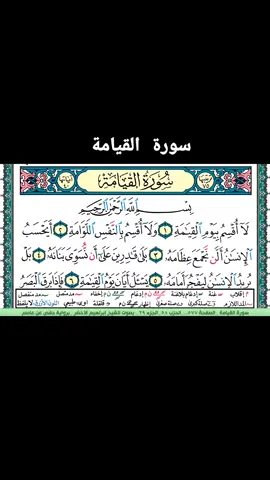 سورة القيامة
سُورَةُ القِيَامَةِ
بِسْمِ اللَّهِ الرَّحْمَٰنِ الرَّحِيمِ
لَا أُقْسِمُ بِيَوْمِ الْقِيَٰمَةِ ١ وَلَا أُقْسِمُ بِالنَّفْسِ اللَّوَّامَةِ ٢ أَيَحْسَبُ
الْإِنسَٰنُ أَلَّن نَّجْمَعَ عِظَامَهُ ٣ بَلَىٰ قَٰدِرِينَ عَلَىٰ أَن نُّسَوِّيَ بَنَانَهُ ٤ بَلْ
يُرِيدُ الْإِنسَٰنُ لِيَفْجُرَ أَمَامَهُ ٥ يَسْـَٔلُ أَيَّانَ يَوْمُ الْقِيَٰمَةِ ٦ فَإِذَا بَرِقَ الْبَصَرُ
سورة القيامة . الصفحة ٥٧٧ . الحزب ٥٨ . الجزء ٢٩ . بصوت الشيخ ابراهيم الاخضر . برواية حفص عن عاصم